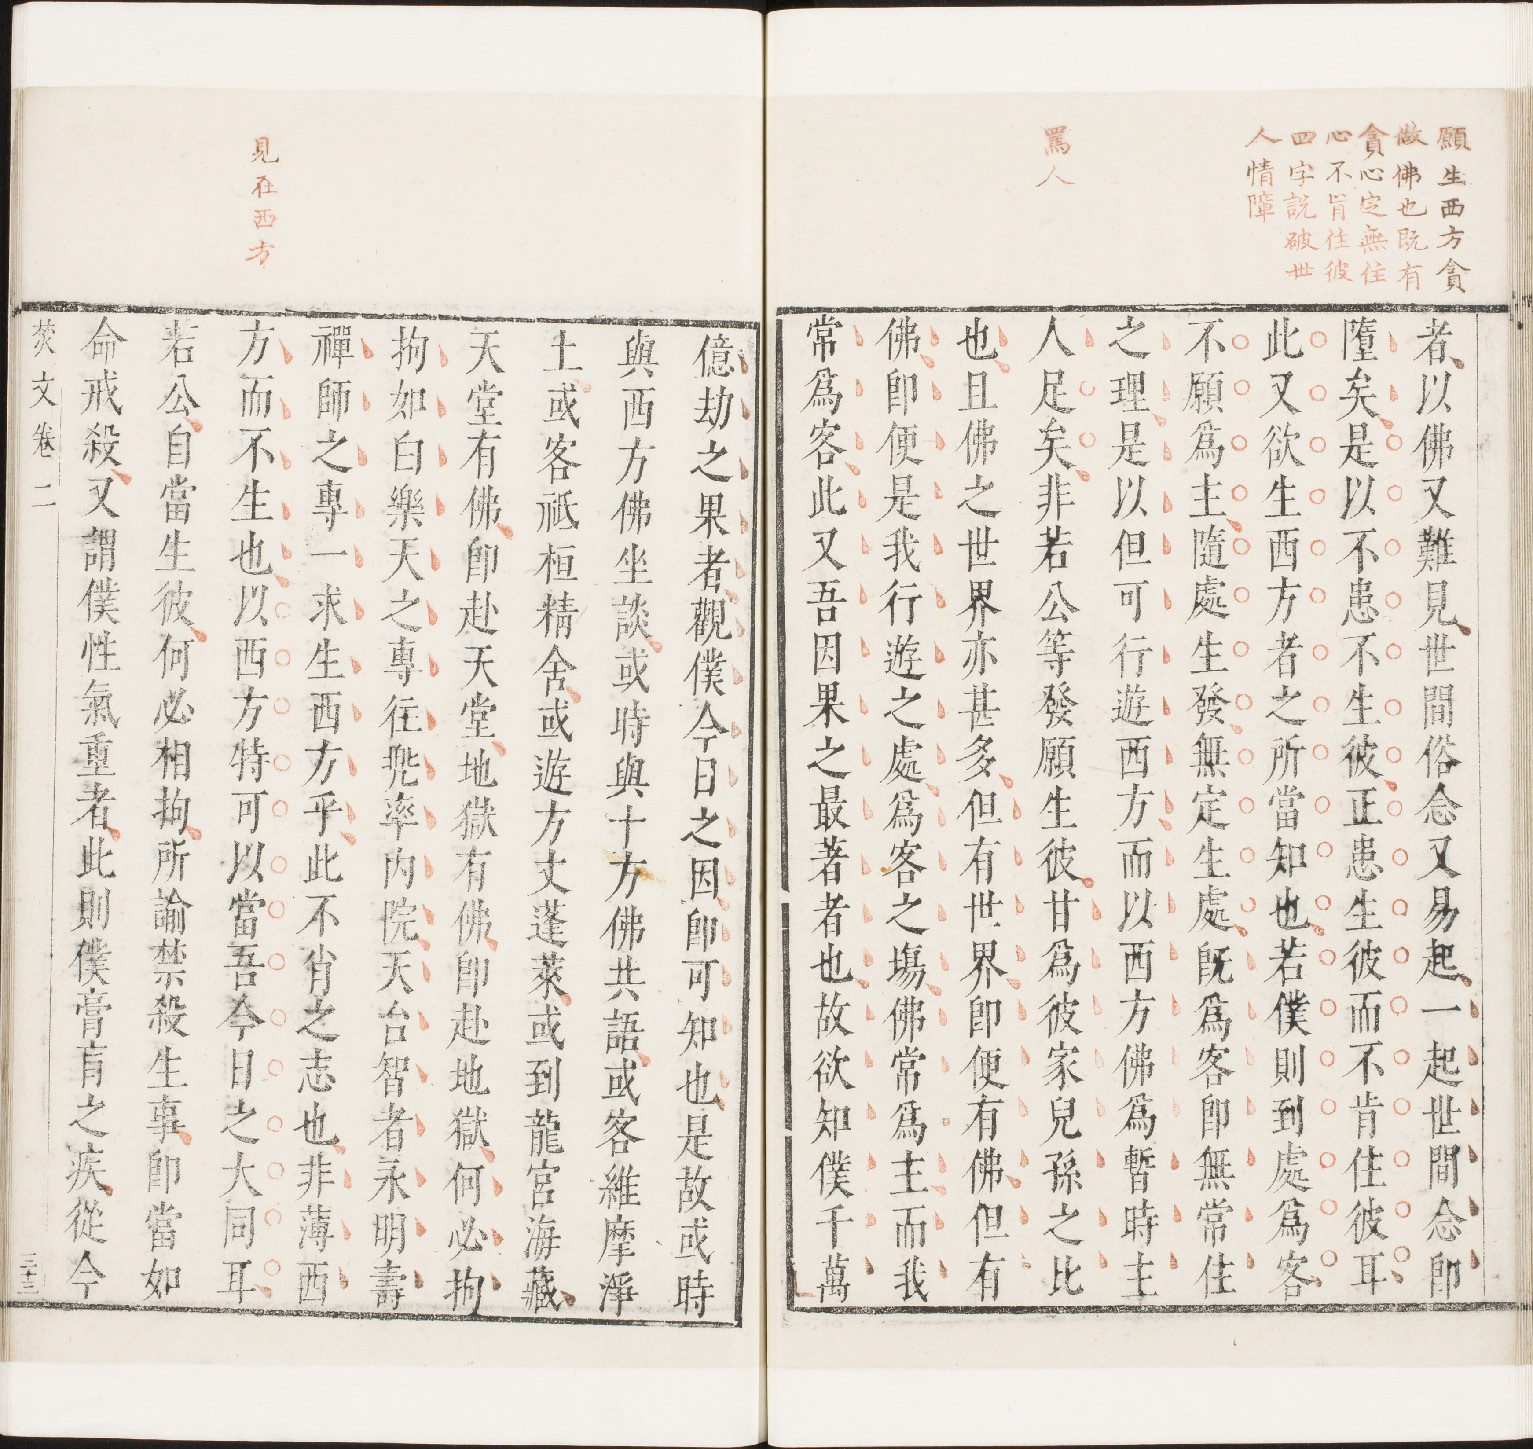 願生西方貪
做佛也既有
貪心定無住
心不肯住彼
四字説破世
人情障
罵人
者以佛又難見世間俗念又易起一起世間念卽
墮矣是以不患不生彼正患生彼而不肯住彼耳
此又欲生西方者之所當知也若僕則到處爲客
不願爲主隨處生發無定生處旣爲客卽無常住
之理是以但可行遊西方而以西方佛爲暫時主
人足矣非若公等發願生彼甘爲彼家兒孫之比
也且佛之世界亦甚多但有世界卽便有佛但有
佛卽便是我行遊之處爲客之塲佛常爲主而我
常爲客此又吾因果之最著者也故欲知僕千萬
見在西方
億劫之果者觀僕今日之因卽可知也是故或時
與西方佛坐談或時與十方佛共語或客維摩淨
土或客祗桓精舍或遊方丈蓬萊或到龍宮海藏
天堂有佛卽赴天堂地獄有佛卽赴地獄何必拘
拘如白樂天之專往兜率內院天台智者永明壽
禪師之專一求生西方乎此不肖之志也非薄西
方而不生也以西方特可以當吾今日之大同耳
若公自當生彼何必相拘所諭禁殺生事卽當如
命戒殺又謂僕性氣重者此則僕膏肓之疾從今
焚文卷二
三十三